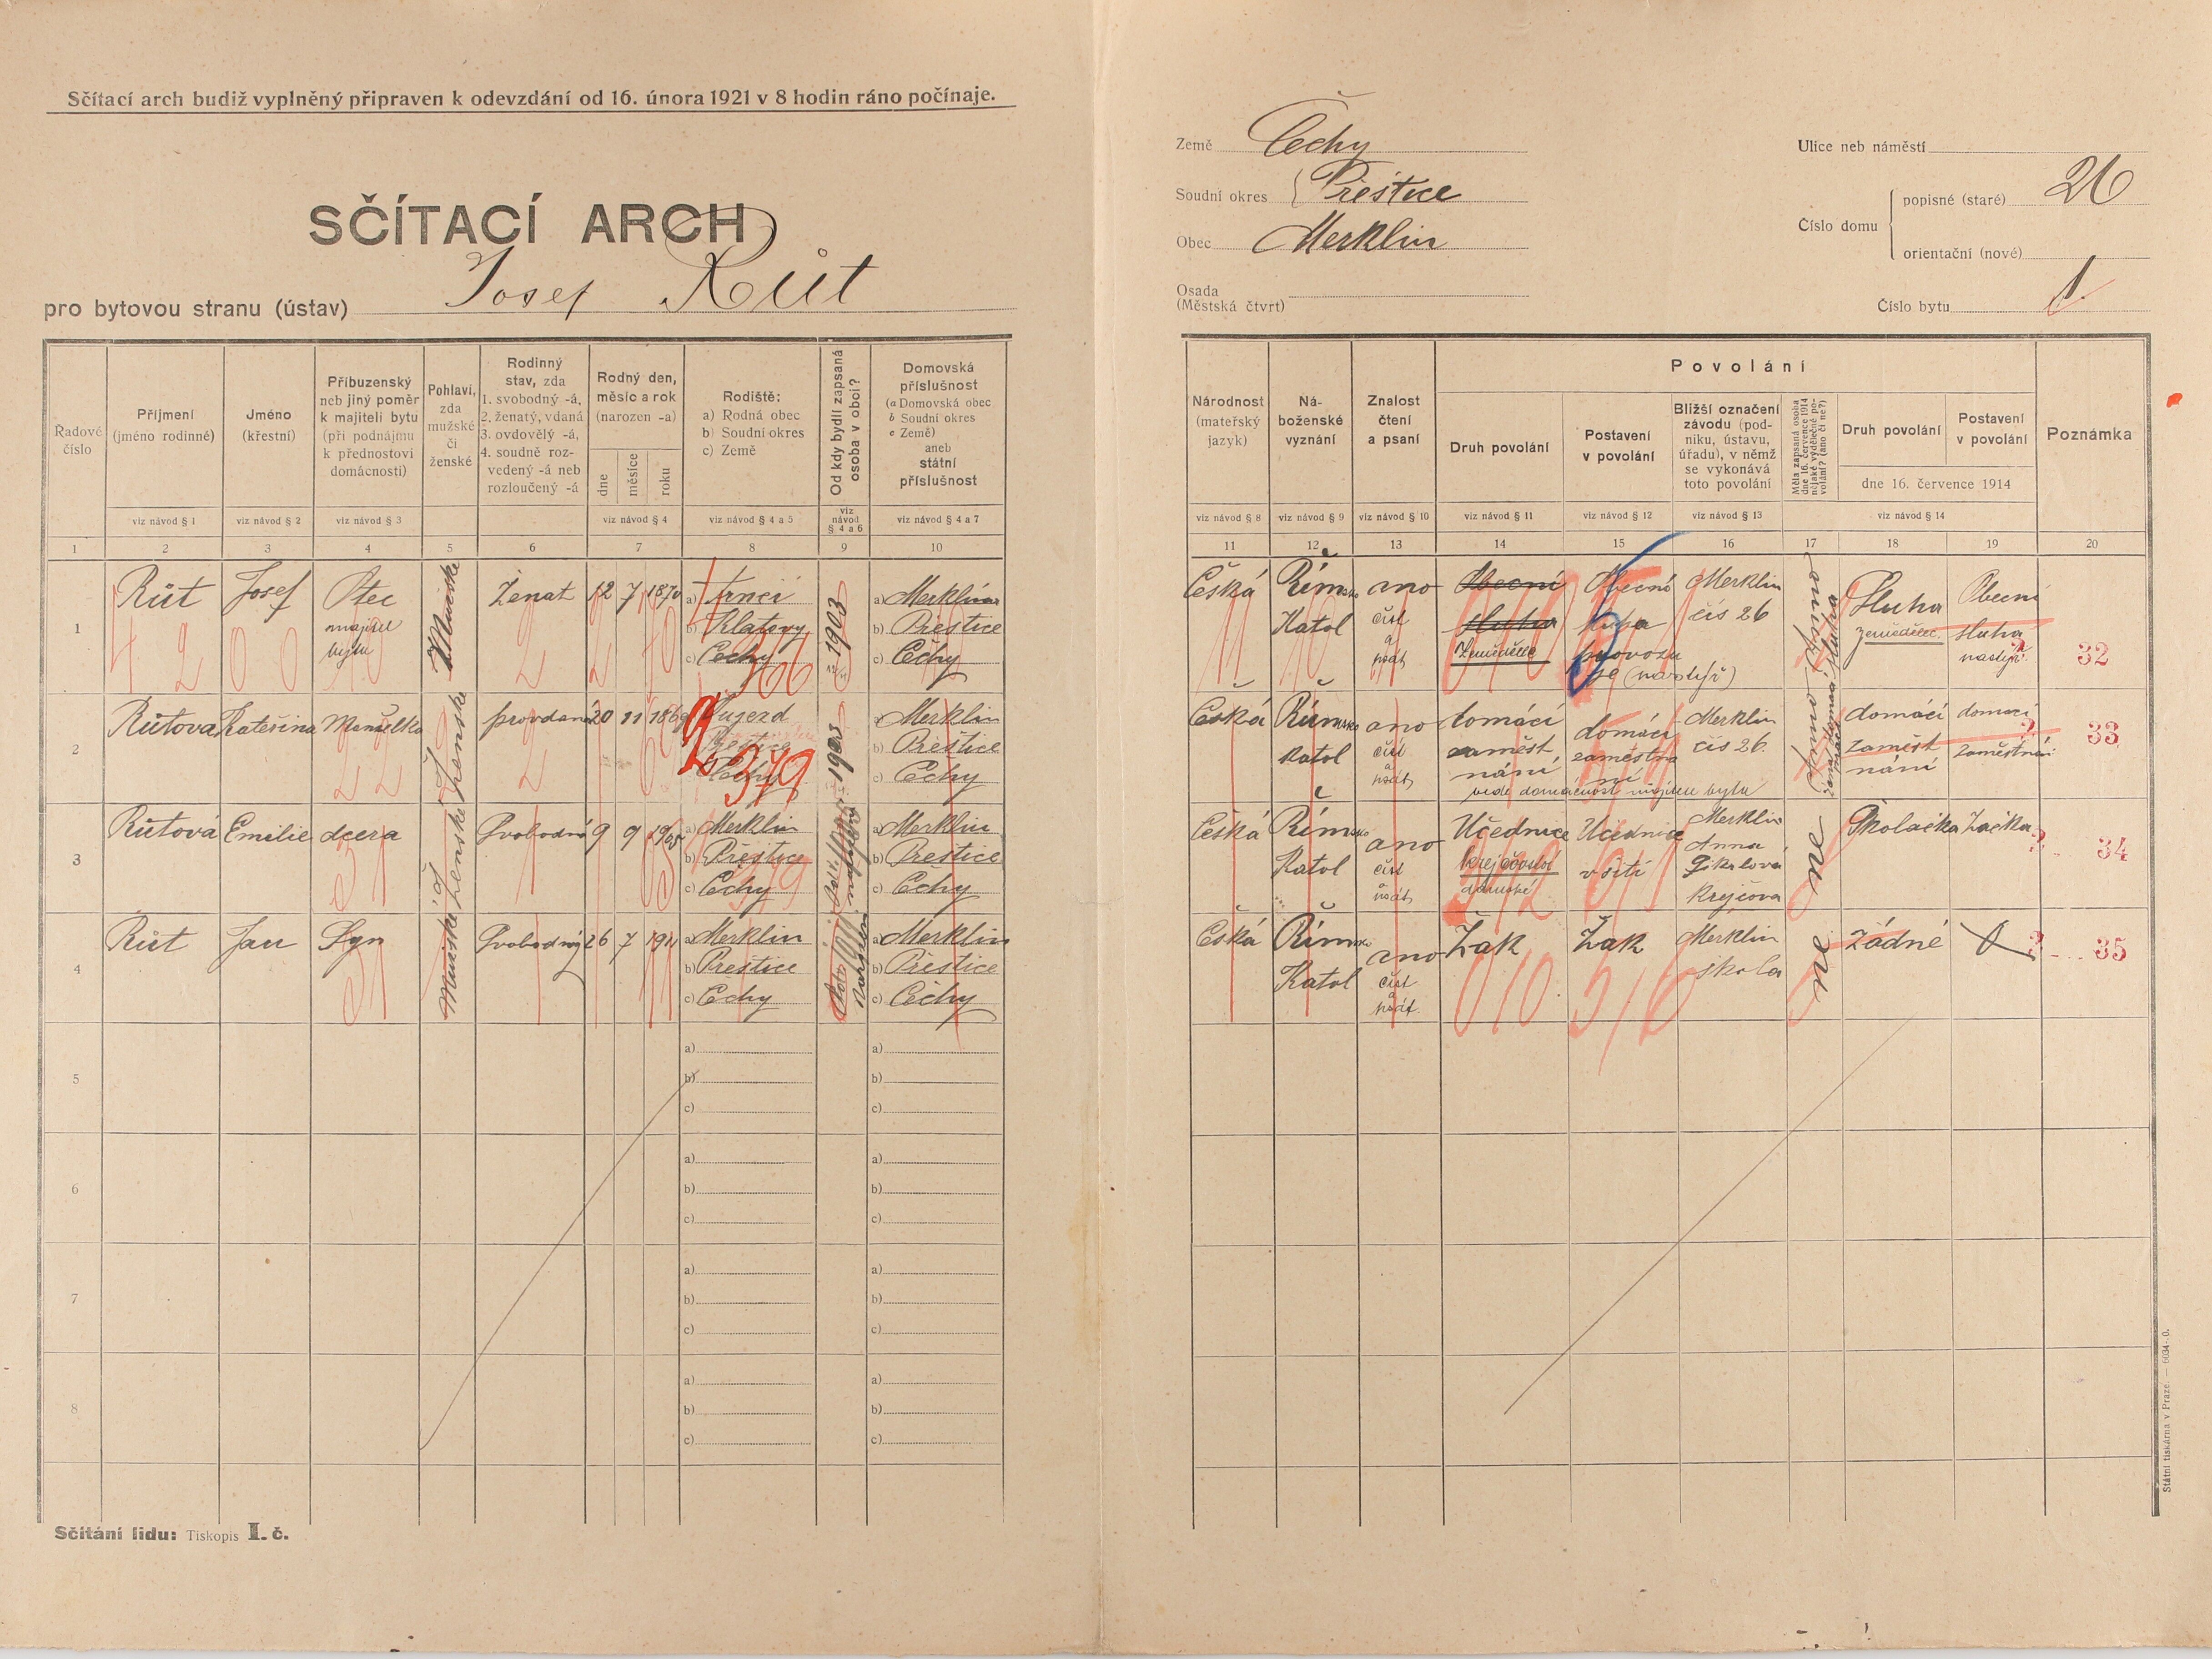 Sčítací arch budiž vyplněný připraven k odevzdání od 16. února 1921 v 8 hodin ráno počínaje.
SČÍTACÍ ARCH
pro bytovou stranu (ústav) Josef Růt
Země Čechy
Soudní okres Přestice
Obec Merklin
Osada
(Městská čtvrt)
Ulice neb náměstí
Číslo domu
popisné (staré) 26
orientační (nové)
Číslo bytu 1.
Řadové
číslo
Příjmení
(jméno rodinné)
Jméno
(křestní)
Příbuzenský
neb jiný poměr
k majiteli bytu
(při podnájmu
k přednostovi
domácnosti)
Pohlaví,
zda
mužské
či
ženské
Rodinný
stav, zda
1. svobodný -á,
2. ženatý, vdaná
3. ovdovělý -á,
4. soudně roz-
vedený -á neb
rozloučený -á
Rodný den,
měsíc a rok
(narozen -a)
dne
měsíce
roku
Rodiště:
a) Rodná obec
b) Soudní okres
c) Země
Od kdy bydlí zapsaná
osoba v obci?
Domovská
příslušnost
(a Domovská obec
b Soudní okres
c Země)
aneb
státní
příslušnost
viz návod § 1
viz návod § 2
viz návod § 3
viz návod § 4
viz návod § 4 a 5
viz
návod
§ 4 a 6
viz návod § 4 a 7
1 2 3 4 5 6 7 8 9 10
Národnost
(mateřský
jazyk)
Ná-
boženské
vyznání
Znalost
čtení
a psaní
Povolání
Druh povolání
Postavení
v povolání
Bližší označení
závodu (pod-
niku, ústavu,
úřadu), v němž
se vykonává
toto povolání
Měla zapsaná osoba
dne 16. července 1914
nějaké výdělečné po-
volání? (ano či ne?)
Druh povolání
Postavení
v povolání
dne 16. července 1914
Poznámka
viz návod § 8
viz návod § 9
viz návod § 10
viz návod § 11
viz návod § 12
viz návod § 13
viz návod § 14
11 12 13 14 15 16 17 18 19 20
1
Růt
Josef
Otec
majitel
bytu
Mužské
Ženat
12 7 1870
a)
b) Klatovy
c) Čechy
366
1903
a) Merklin
b) Prestice
c) Čechy
Česká
Římsko
Katol
ano
číst
a
psát
Obecní
sluha
Zemědělec
Obecní
Merklin
čís 26
ano
Sluha
zemědělec
Obecní
sluha
32
2
Růtova
Kateřina
Manželka
Ženské
provdana
20 11 1869
Prestice
Čechy
379
1903
a) Merklin
b) Prestice
c) Čechy
Česká
Římsko
Katol
ano
číst
a
psát
domácí
zaměst
nání
domácí
zaměstna
ní
vede domácnost majiteli bytu
Merklin
čís 26.
Ano
domácí
zaměst
nání
domací
zaměstnání
33
3
Růtová
Emilie
dcera
Ženské
Svobodná
9 9 1905
a) Merklin
b) Prestice
c) Čechy
a) Merklin
b) Prestice
c) Čechy
Česká
Římsko
Katol
ano
číst
a
psát
Učednice
Krejčovství
dámské
Učednice
v šití
Merklin
Anna
Krejčova
ne
Školačka
Žačka
34
4
Růt
Jan
Syn
Mužské
Svobodný
26 7 1911
a) Merklin
b) Prestice
c) Čechy
a) Merklin
b) Přestice
c) Čechy
Česká
Římsko
Katol
ano
číst
a
psát.
Žak
Žak
Merklin
škola
ne
žádné
35
5
a)
b)
c)
a)
b)
c)
6
a)
b)
c)
a)
b)
c)
7
a)
b)
c)
a)
b)
c)
8
a)
b)
c)
a)
b)
c)
Sčítání lidu: Tiskopis I. č.
Státní tiskárna v Praze. — 6034-0.